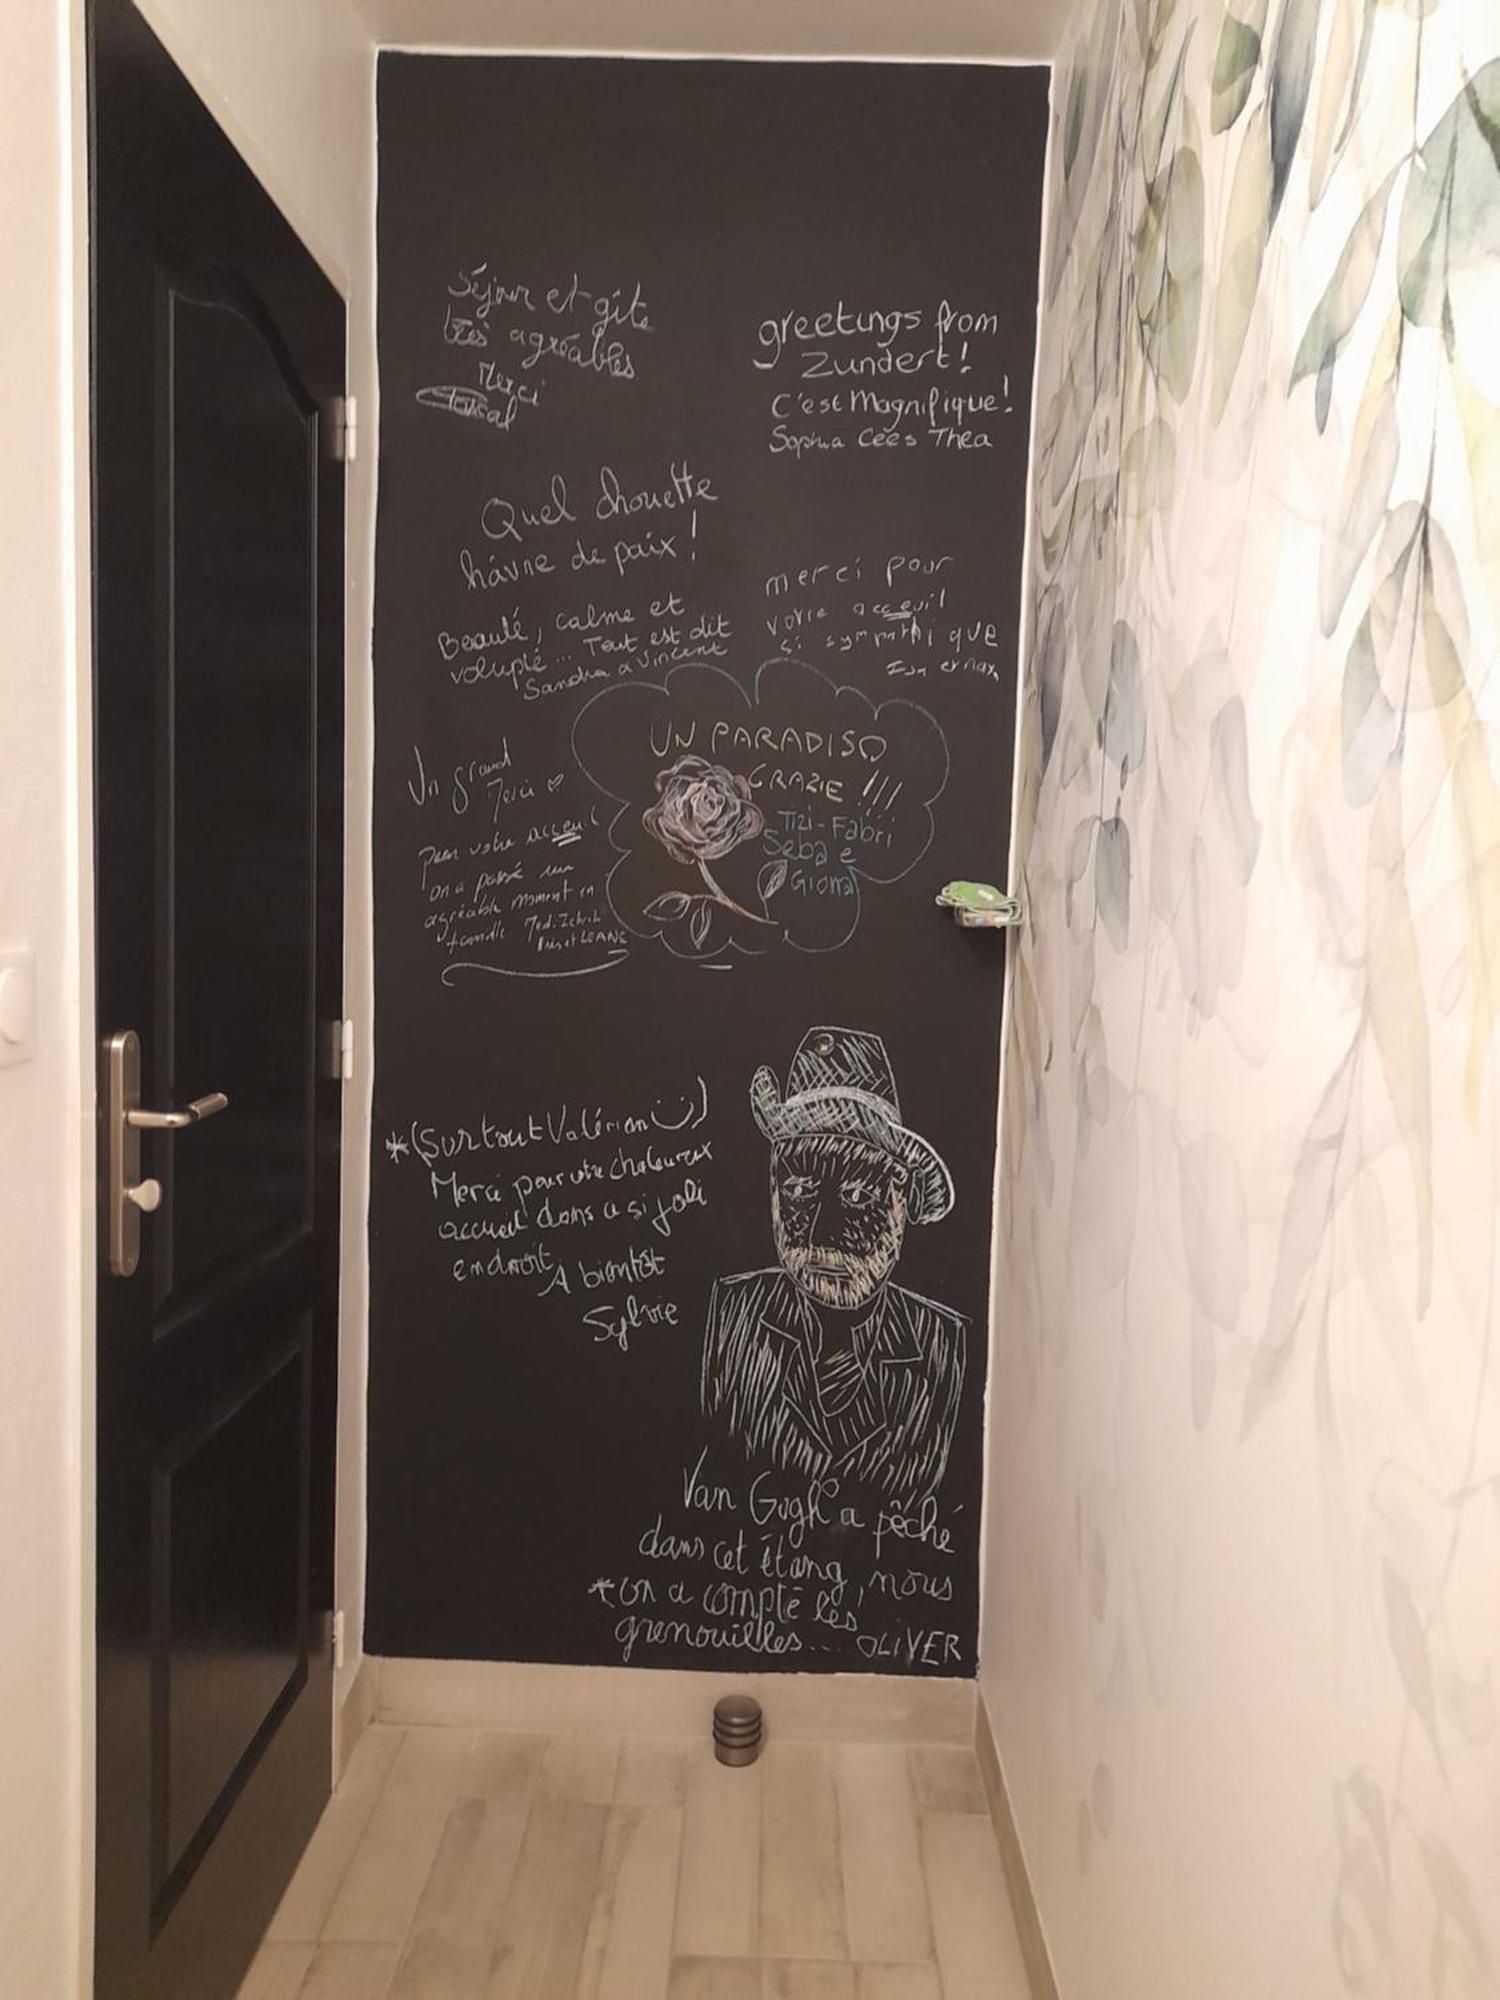 Séjour et gîte
très agréables
Merci
greetings from
Zundert!
C'est Magnifique!
Sophia Cees Thea
Quel chouette
hâvre de paix !
Beauté, calme et
volupté ... Tout est dit
Sandra & Vincent
merci pour
votre acceuil
si sympathique
et max
Un grand
Merci
pour votre acceuil
on a passé un
agréable moment en
famille
et LEANE
UN PARADISO
GRAZIE !!!
Tizi-Fabri
Seba e
*(Surtout Valérian )
Merci pour votre chaleureux
accueil dans ce si joli
endroit
A bientôt
Sylvie
Van Gogh a pêché
dans cet étang, nous
*on a compté les
grenouilles... OLIVER